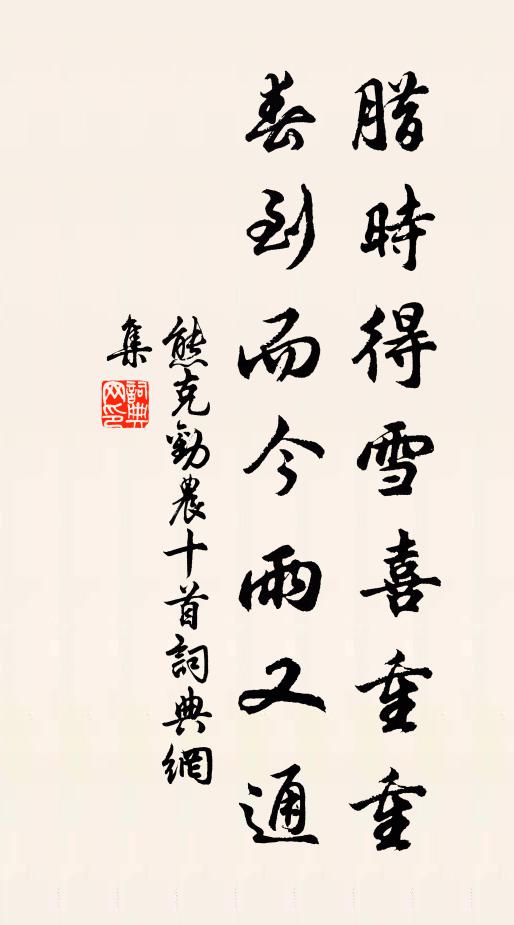 腊時得雪喜重重
春到而今雨又通
熊克勸農十首詞典網
集
詞典网印